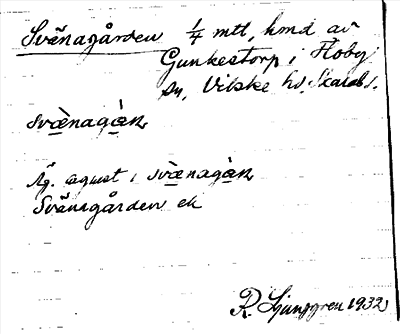 Svänagården 1/4 mtl, hmd av
Gunkestorp i Floby
sn, Vilske hd, Skarab. l.
svæ̀nagán
Äg. agust i svæ̀nagàn
Svänagården ek
R. Ljunggren 1932